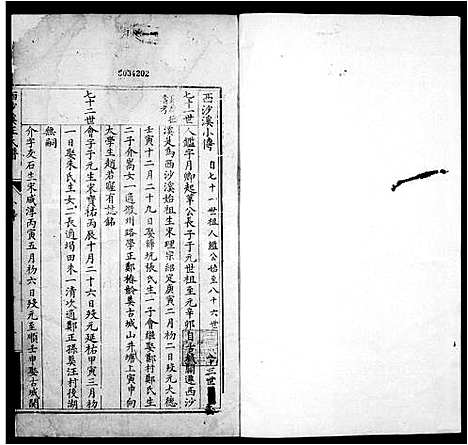 5034202
西沙溪小傳 自七十一世祖人鑑公始至八十六世
七十一世人鑑字月卿起莘公長子于元世祖至元辛卯自古城關遷西沙
溪是為西沙溪始祖生宋理宗紹定庚寅二月初二日歿元大德
壬寅十二月二十九日娶篩坑張氏生一子會繼娶鄭村鄭氏生
二子會 女一適徽州路學正鄭椿齡葬古城山井塘上寅申向
太學生趙若 有誌銘
七十二世會字于元生宋寶祐丙辰十月二十六日歿元延祐甲寅三月初
一日娶朱氏生女二長適塲田朱一清次適鄭正孫葬汪村後湖
無嗣
介字友石生宋咸淳丙寅五月初六日歿元至順壬申娶古城關